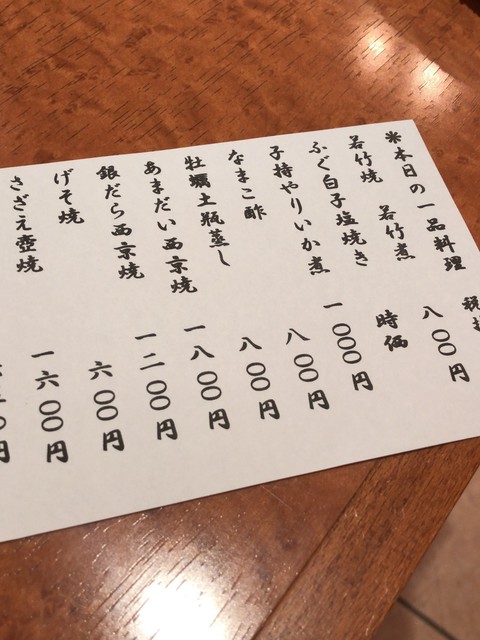 ※本日の一品料理
若竹焼　若竹煮　八〇〇円
ふぐ白子塩焼き　時価
子持やりいか煮　一〇〇〇円
なまこ酢　八〇〇円
牡蠣土瓶蒸し　八〇〇円
あまだい西京焼　一八〇〇円
銀だら西京焼　一二〇〇円
げそ焼　六〇〇円
さざえ壺焼　一六〇〇円
円